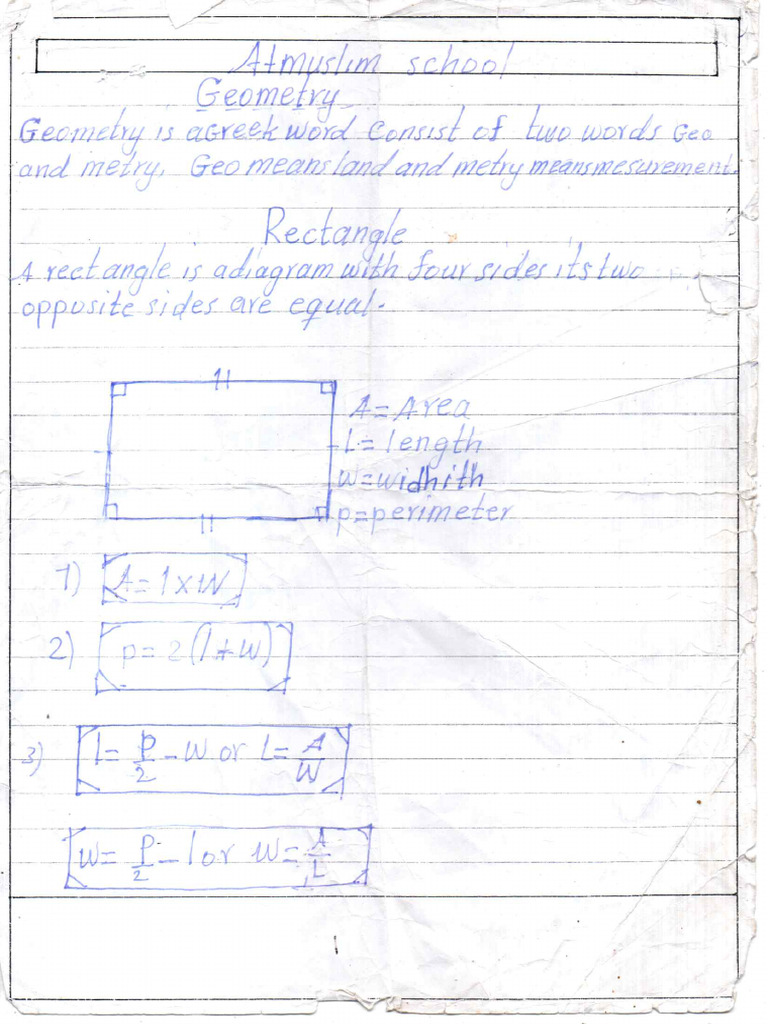 Atmuslim school
Geometry
Geometry is a Greek word Consist of two words Geo
and metry. Geo means land and metry means mesurement.
Rectangle
A rectangle is a diagram with four sides its two
opposite sides are equal.
A = Area
L = length
W = widhith
p = perimeter
1) A = l × W
2) p = 2 (l + W)
3) l = P/2 - W or L = A/W
W = P/2 - l or W = A/L
1